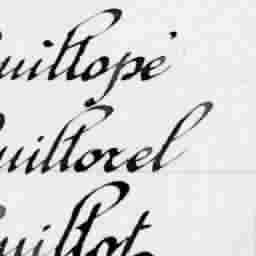 uillopé
uillorel
uillot